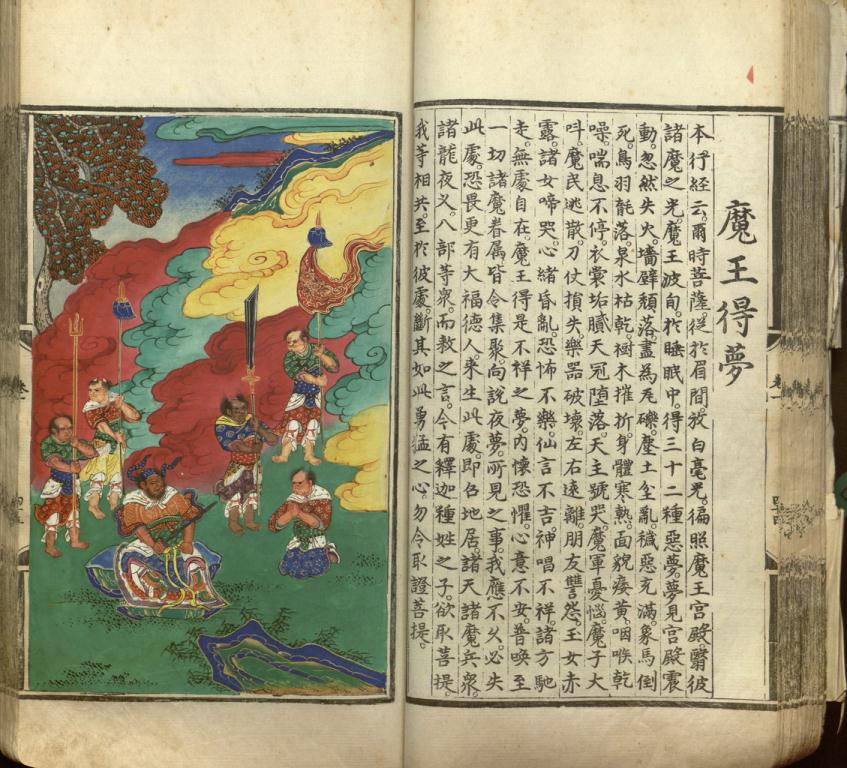 魔王得夢
本行経云。爾時菩薩。從於眉間。放白毫光。徧照魔王宮殿。翳彼
諸魔之光。魔王波旬。於睡眠中。得三十二種惡夢。夢見宮殿震
動。忽然失火。墻壁頹落。盡為瓦礫。塵土坌亂。穢惡充滿。象馬倒
死。鳥羽毻落。泉水枯乾。樹木摧折。身體寒熱。面貌痿黄。咽喉乾
噪。喘息不停。衣裳垢膩。天冠墮落。天主號哭。魔軍憂惱。魔子大
呌。魔民逃散。刀仗損失。樂器破壞。左右遠離。朋友讐怨。玉女赤
露。諸女啼哭。心緒昏亂。恐怖不樂。仙言不吉。神唱不祥。諸方馳
走。無處自在。魔王得是不祥之夢。内懷恐懼。心意不安。普喚至
一切諸魔眷属。皆令集聚。向說夜夢。所見之事。我應不久。必失
此處。恐畏更有大福德人。來生此處。即召地居。諸天諸魔兵衆。
諸龍夜义。八部等衆。而敕之言。今有釋迦種姓之子。欲取菩提。
我等相共。至於彼處。斷其如此勇猛之心。勿令取證菩提。